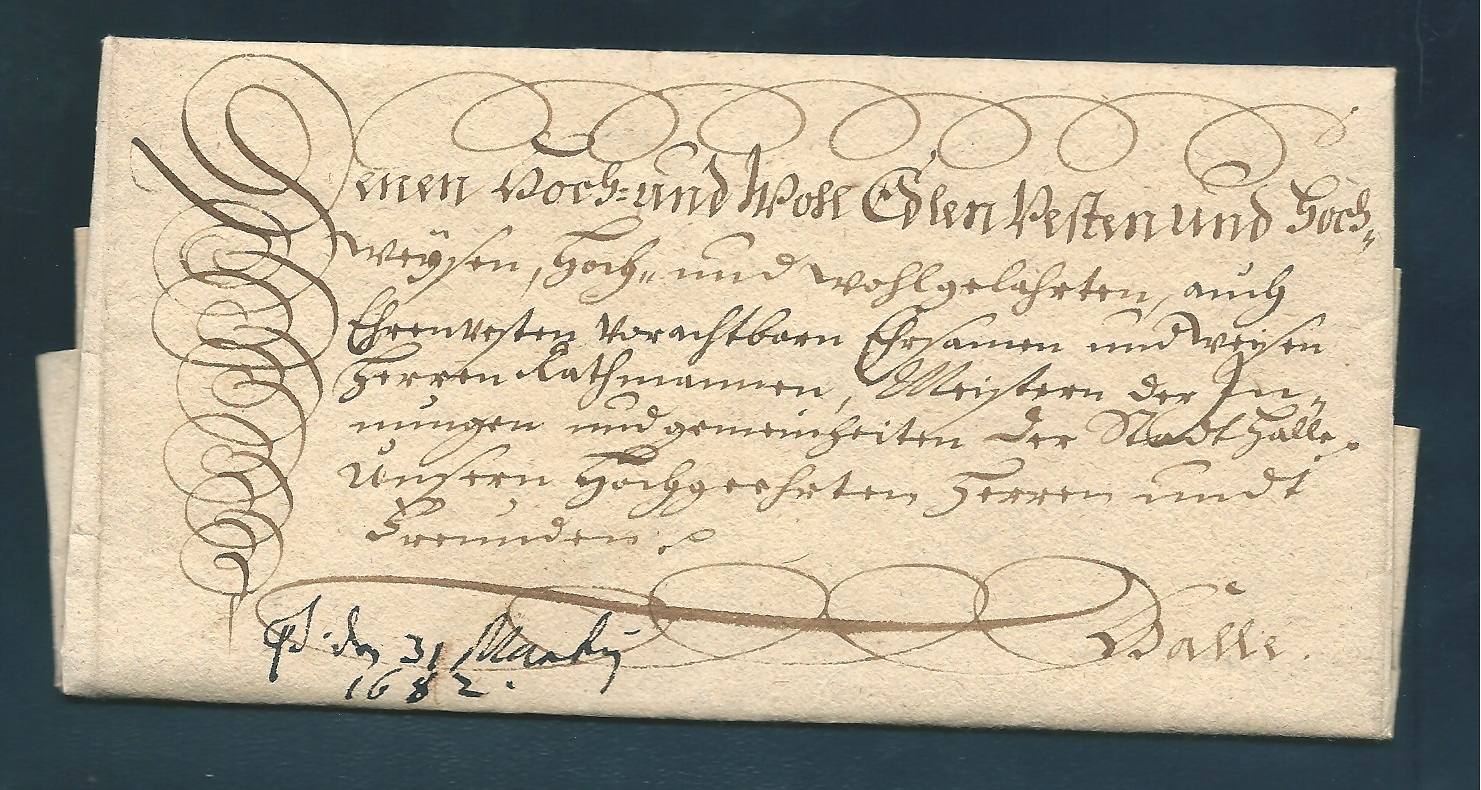 Denen Hoch- und Wohl Edlen Vesten und Hoch-
weÿsen, Hoch- und Wohlgelahrten, auch
Ehrenvesten Vorachtbarn Ehrsamen und Weisen
Herren Rathmannen, Meistern der In-
nungen und gemeinheiten der Stadt Halle.
Unsern Hochgeehrten Herren undt
Freunden.
Halle.
den 31 Martij
1682.